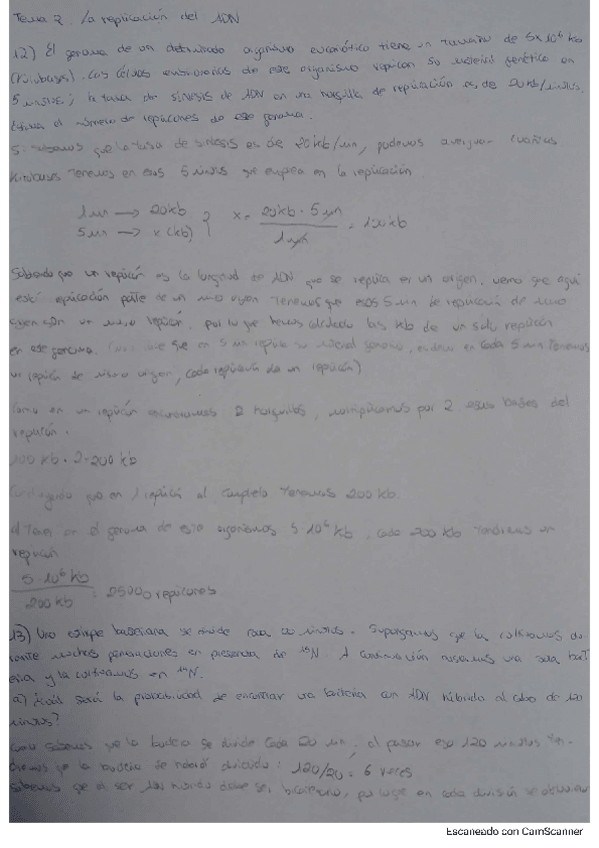 Tema 2. La replicación del ADN
12) El genoma de un determinado organismo eucariótico tiene un tamaño de 5x10⁶ Kb
(Kilobases). Las células embrionarias de este organismo replican su material genético en
5 minutos; la tasa de síntesis de ADN en una horquilla de replicación es de 20 kb/minuto.
el número de replicones de ese genoma.
Sabemos que la tasa de síntesis es de 20 kb/min, podemos averiguar cuántas
Kilobases Tenemos en esos 5 minutos que emplea en la replicación.
1 min → 20 kb
5 min → x (kb) } x = 20 kb · 5 min / 1 min = 100 kb
Sabiendo que un replicón es la longitud de ADN que se replica en un origen, vemos que aquí
está replicación parte de un mismo origen Tenemos que esos 5 min de replicación de
son un mismo replicón, por lo que hemos calculado las Kb de un solo replicón
en ese genoma. que en 5 min replica su material genómico, en cada 5 min Tenemos
un replicón de mismo origen, cada de un replicón)
Como en un replicón encontramos 2 horquillas, multiplicamos por 2 esas bases del
replicón.
100 Kb · 2 = 200 Kb
que en 1 replicón al completo Tenemos 200 Kb.
Al Tener en el genoma de este organismo 5 10⁶ Kb, cada 200 Kb Tendremos un
replicón
5 · 10⁶ Kb / 200 Kb = 25000 replicones
13) Una estirpe bacteriana se divide cada 20 minutos. Supongamos que la cultivamos du-
rante muchas generaciones en presencia de ¹⁵N. A continuación una sola bact
eria y la cultivamos en ¹⁴N.
a) ¿Cuál será la probabilidad de encontrar una bacteria con ADN híbrido al cabo de 120
minutos?
Como sabemos que la bacteria se divide cada 20 min, al pasar eso 120 minutos Ten-
dremos que la bacteria se habrá dividido: 120/20 = 6 veces
Sabemos que al ser ADN en cada división se
Escaneado con CamScanner